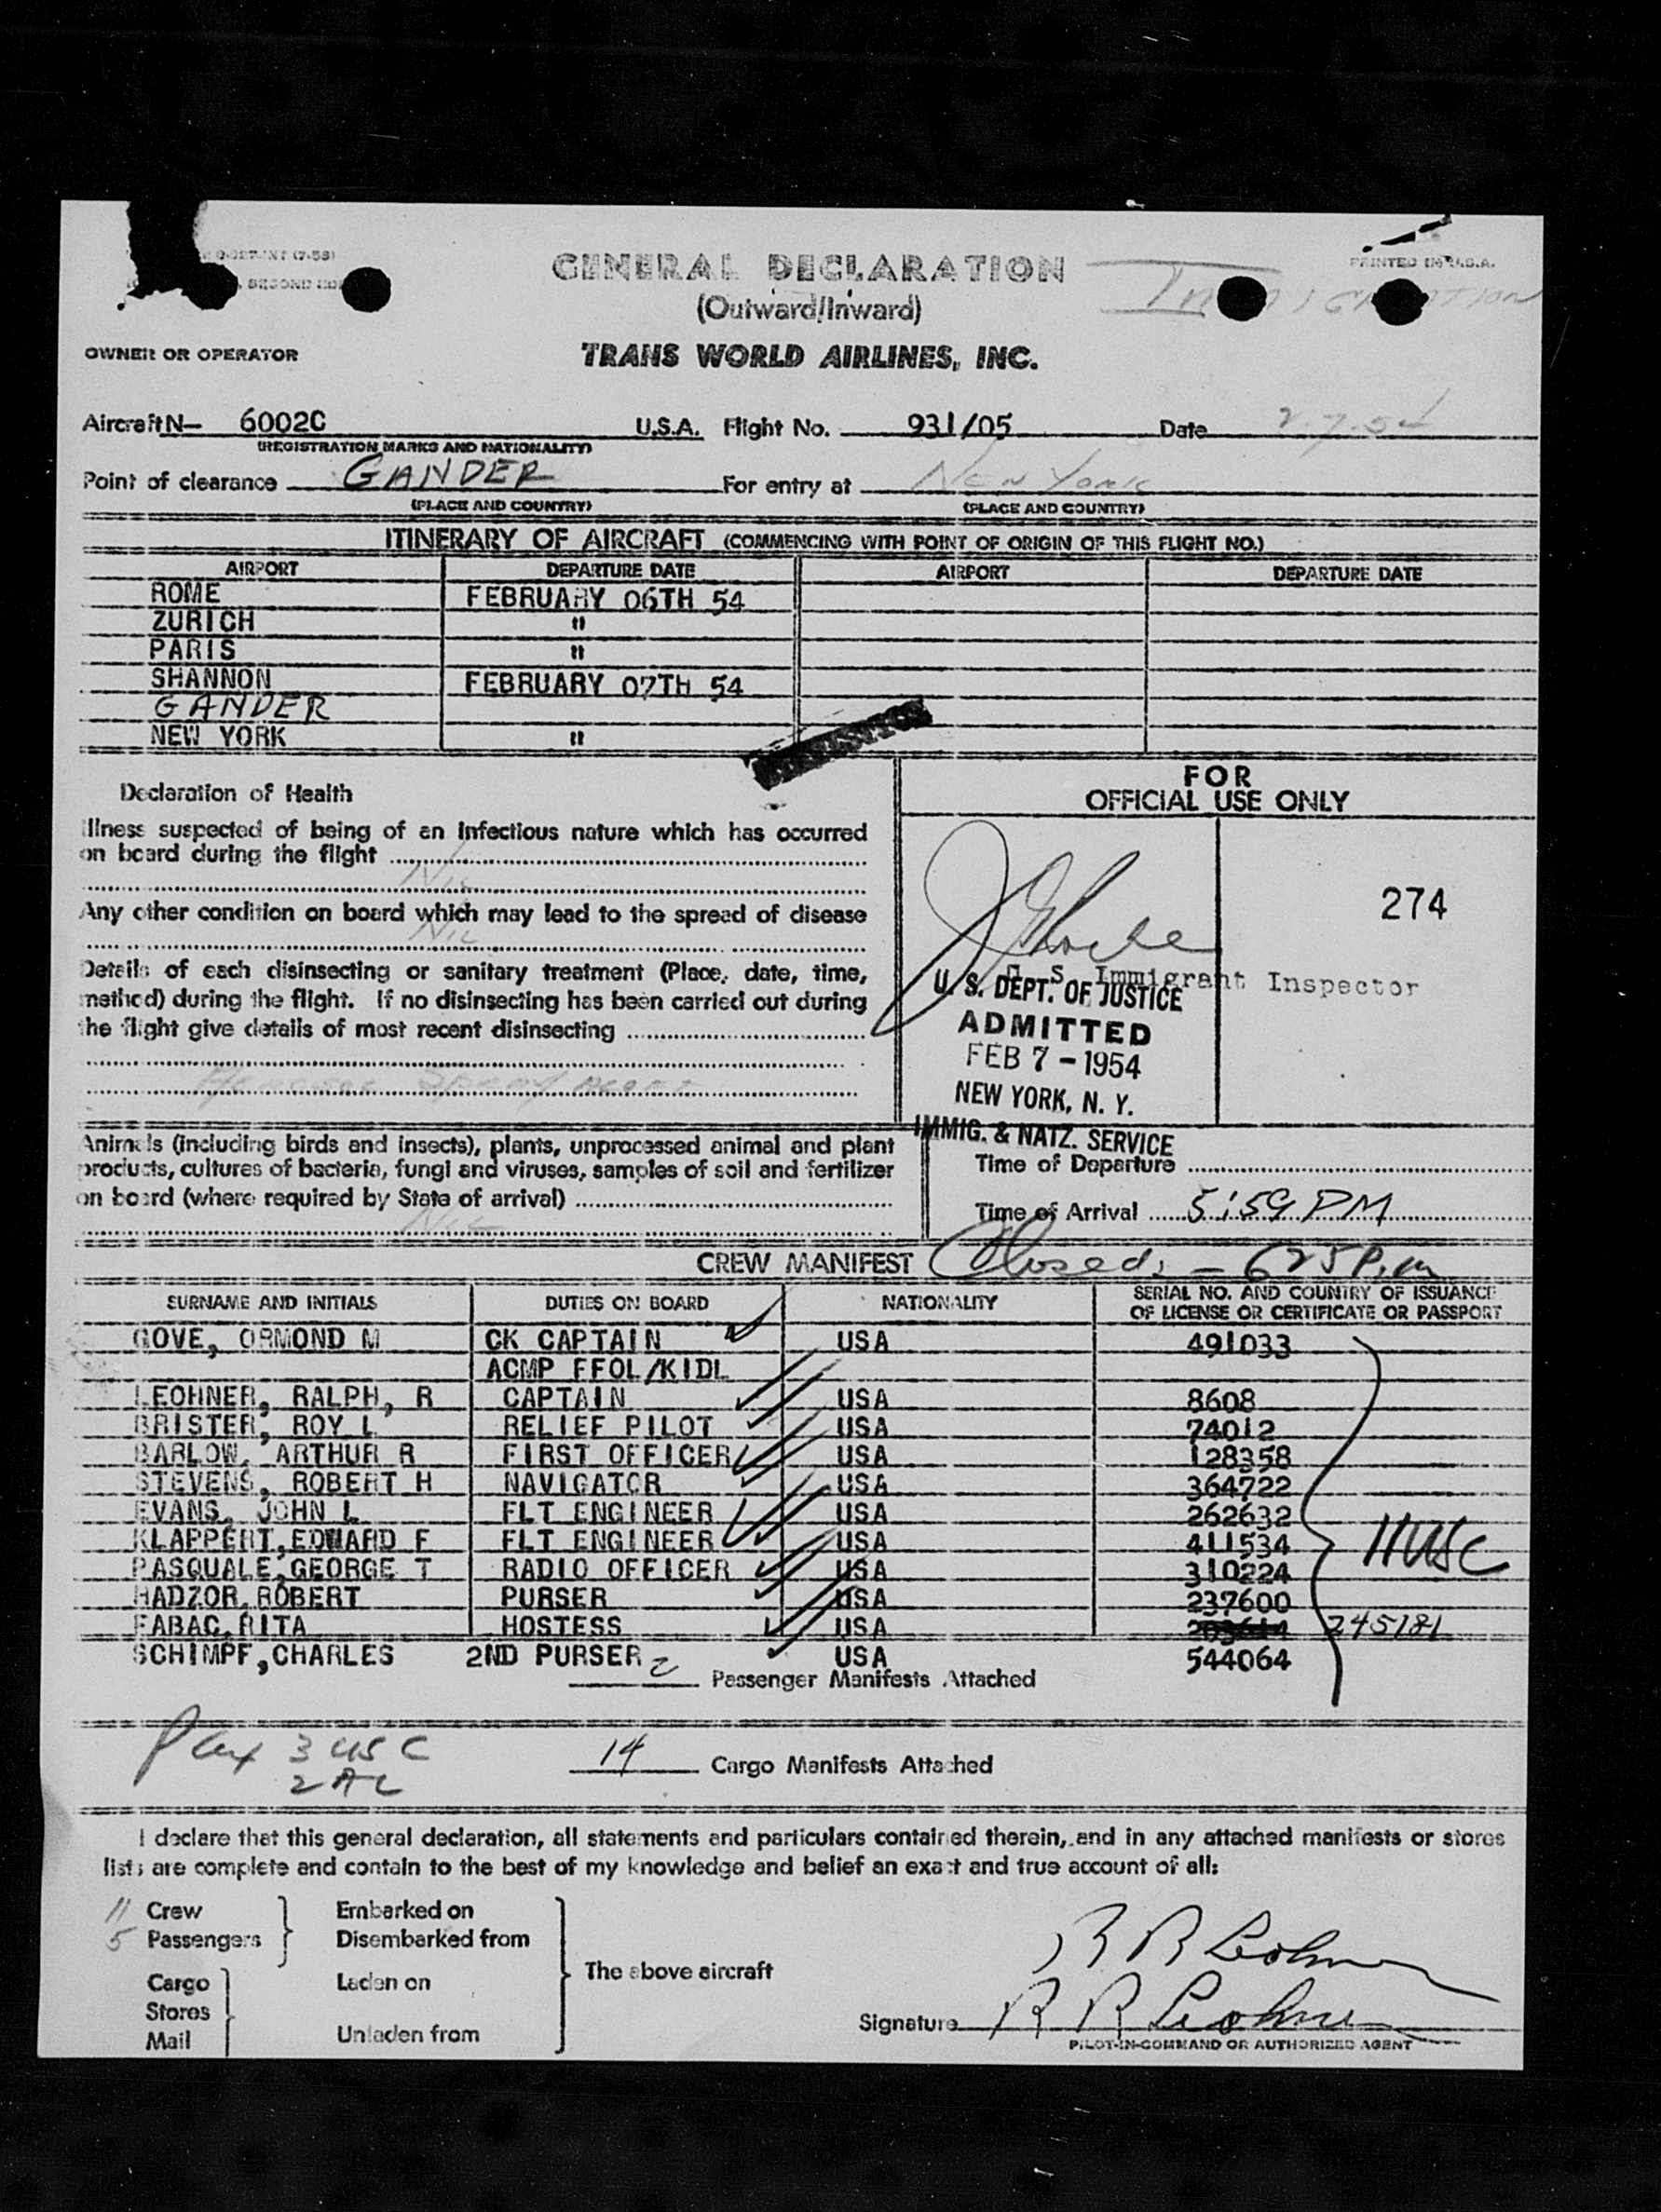 GENERAL DECLARATION
(Outward/Inward)
PRINTED IN U.S.A.
OWNER OR OPERATOR TRANS WORLD AIRLINES, INC.
Aircraft N- 6002C U.S.A. Flight No. 931/05 Date 2-7-54
(REGISTRATION MARKS AND NATIONALITY)
Point of clearance GANDER For entry at NEW YORK
(PLACE AND COUNTRY) (PLACE AND COUNTRY)
ITINERARY OF AIRCRAFT (COMMENCING WITH POINT OF ORIGIN OF THIS FLIGHT NO.)
AIRPORT DEPARTURE DATE AIRPORT DEPARTURE DATE
ROME FEBRUARY 06TH 54
ZURICH "
PARIS "
SHANNON FEBRUARY 07TH 54
GANDER
NEW YORK "
Declaration of Health
Illness suspected of being of an infectious nature which has occurred
on board during the flight
NIL
Any other condition on board which may lead to the spread of disease
NIL
Details of each disinsecting or sanitary treatment (Place, date, time,
method) during the flight. If no disinsecting has been carried out during
the flight give details of most recent disinsecting
Animals (including birds and insects), plants, unprocessed animal and plant
products, cultures of bacteria, fungi and viruses, samples of soil and fertilizer
on board (where required by State of arrival)
NIL
FOR
OFFICIAL USE ONLY
274
U. S. Immigrant Inspector
U. S. DEPT. OF JUSTICE
ADMITTED
FEB 7 - 1954
NEW YORK, N. Y.
IMMIG. & NATZ. SERVICE
Time of Departure
Time of Arrival 5:59 PM
CREW MANIFEST Closed - 625 P.m
SURNAME AND INITIALS DUTIES ON BOARD NATIONALITY SERIAL NO. AND COUNTRY OF ISSUANCE
OF LICENSE OR CERTIFICATE OR PASSPORT
GOVE, ORMOND M CK CAPTAIN USA 491033
ACMP FFOL/KIDL
LEOHNER, RALPH, R CAPTAIN USA 8608
BRISTER, ROY L RELIEF PILOT USA 74012
BARLOW, ARTHUR R FIRST OFFICER USA 128358
STEVENS, ROBERT H NAVIGATOR USA 364722
EVANS, JOHN L FLT ENGINEER USA 262632
KLAPPERT, EDWARD F FLT ENGINEER USA 411534
11 USC
PASQUALE, GEORGE T RADIO OFFICER USA 310224
HADZOR, ROBERT PURSER USA 237600
FABAC, RITA HOSTESS USA 245181
SCHIMPF, CHARLES 2ND PURSER USA 544064
2 Passenger Manifests Attached
Pax 3 USC
2 AL
14 Cargo Manifests Attached
I declare that this general declaration, all statements and particulars contained therein, and in any attached manifests or stores
lists are complete and contain to the best of my knowledge and belief an exact and true account of all:
11 Crew Embarked on
5 Passengers Disembarked from
Cargo Laden on The above aircraft
Stores
Mail Unladen from
R R Leohner
Signature R R Leohner
PILOT-IN-COMMAND OR AUTHORIZED AGENT